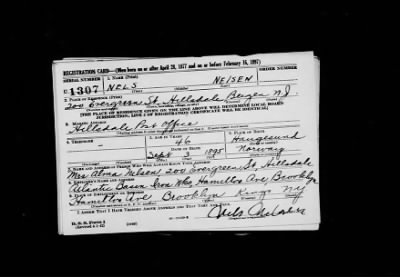 REGISTRATION CARD—(Men born on or after April 28, 1877 and on or before February 16, 1897)
SERIAL NUMBER 1. NAME (Print)
U 1307 NELS NELSEN
2. PLACE OF RESIDENCE (Print)
200 Evergreen St. Hillsdale Bergen N.J.
[THE PLACE OF RESIDENCE GIVEN ON THE LINE ABOVE WILL DETERMINE LOCAL BOARD JURISDICTION; LINE 2 OF REGISTRATION CERTIFICATE WILL BE IDENTICAL]
3. MAILING ADDRESS
Hillsdale Post Office
4. TELEPHONE 5. AGE IN YEARS 6. PLACE OF BIRTH
46 Haugesund
DATE OF BIRTH
3 1895 Norway
7. NAME AND ADDRESS OF PERSON WHO WILL ALWAYS KNOW YOUR ADDRESS
Mrs Alma Nelsen 200 Evergreen St, Hillsdale
8. EMPLOYER'S NAME AND ADDRESS
Atlantic Basin Iron Wks, Hamilton Ave, Brooklyn
9. PLACE OF EMPLOYMENT OR BUSINESS
Hamilton Ave Brooklyn Kings
I AFFIRM THAT I HAVE VERIFIED ABOVE ANSWERS AND THAT THEY ARE TRUE.
D. S. S. Form 1
(Revised 4-1-42)
Nels Nelsen